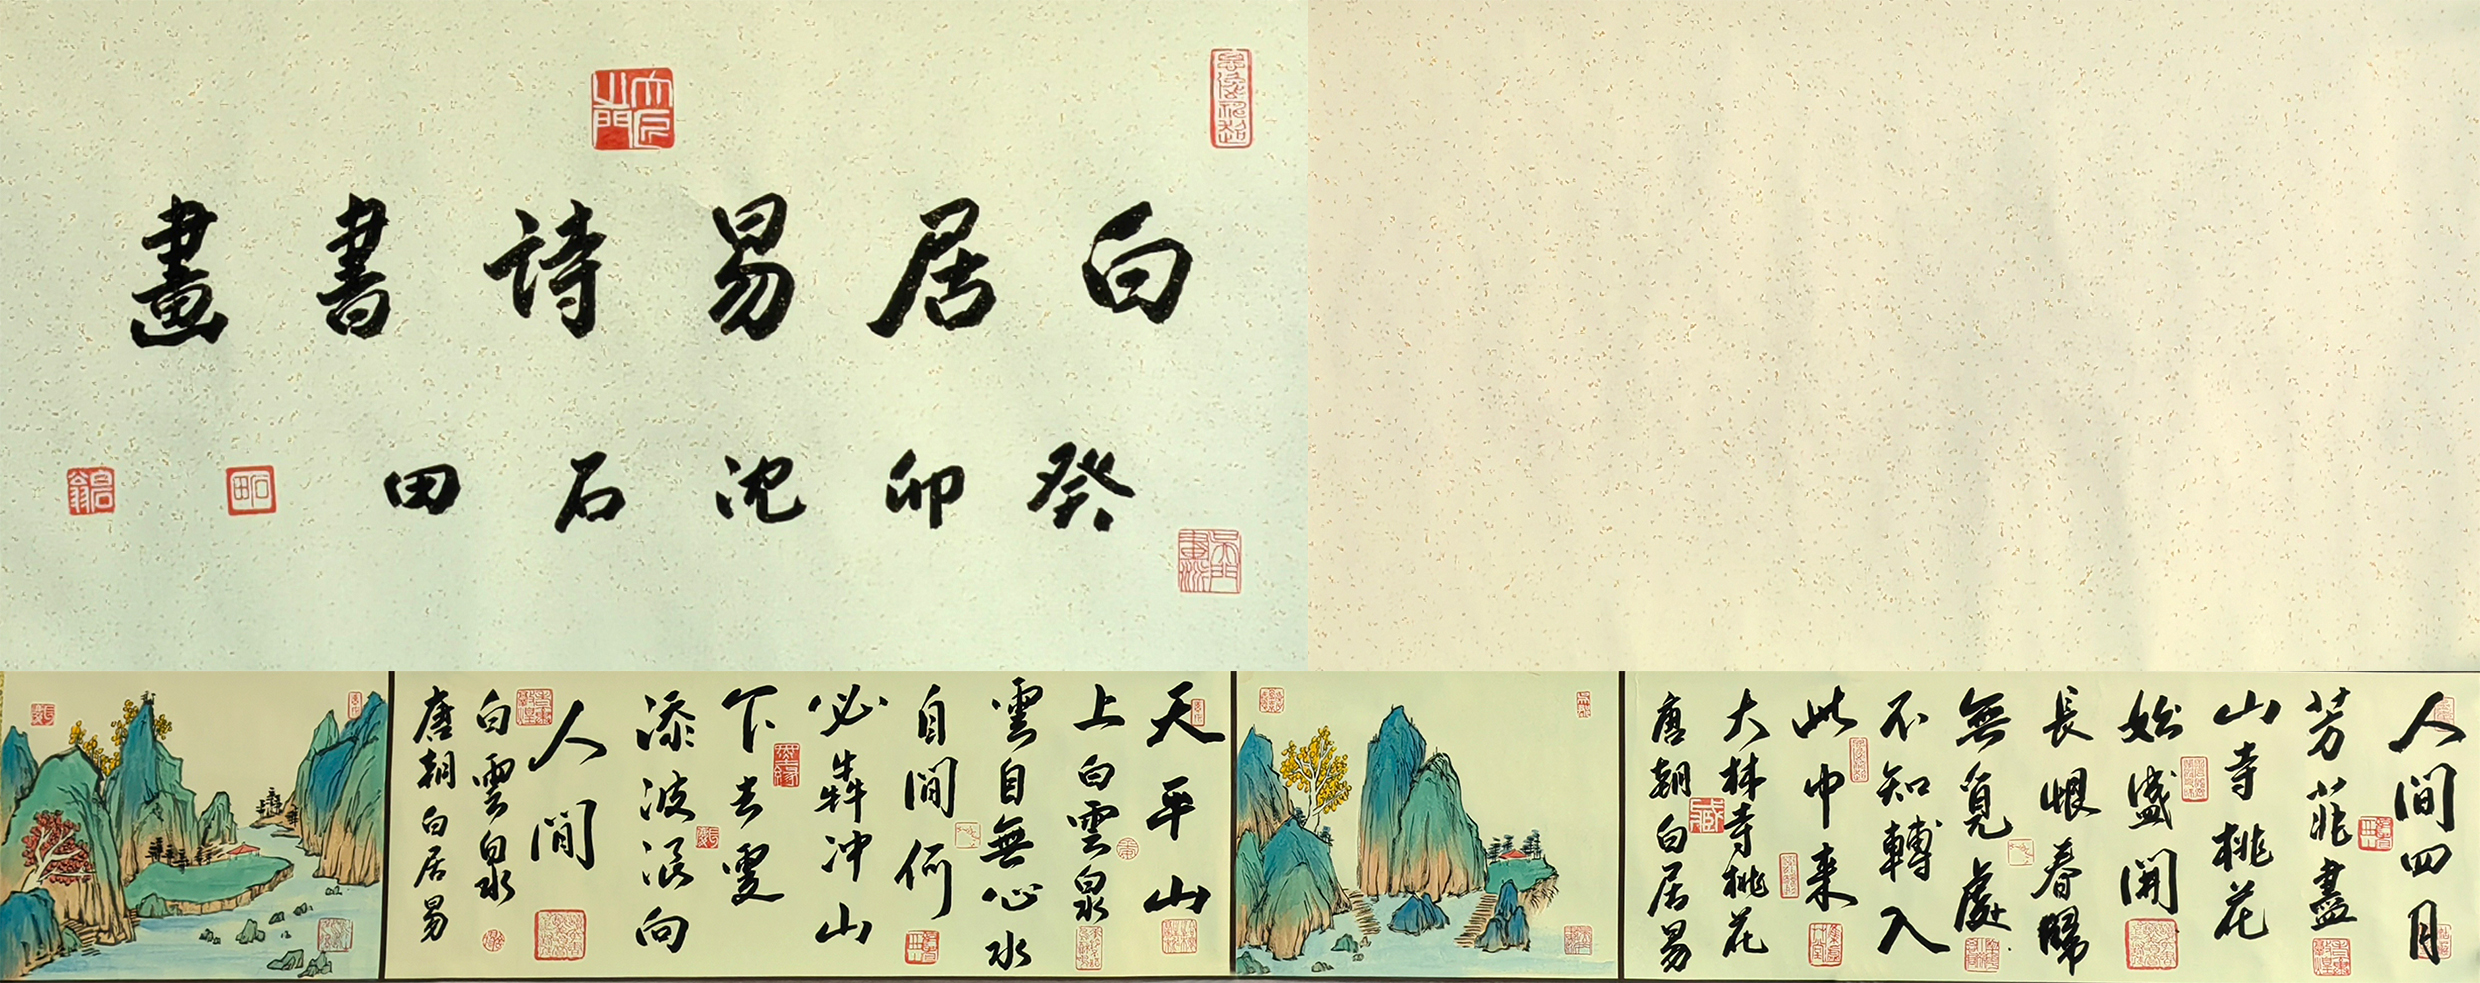 白居易詩書畫
癸卯沈石田
石田
人間四月
芳菲盡
山寺桃花
始盛開
長恨春歸
無覓處
不知轉入
此中来
大林寺桃花
唐朝白居易
天平山
上白雲泉
雲自無心水
自閒何
必犇冲山
下去更
添波浪向
人間
白雲泉
唐朝白居易